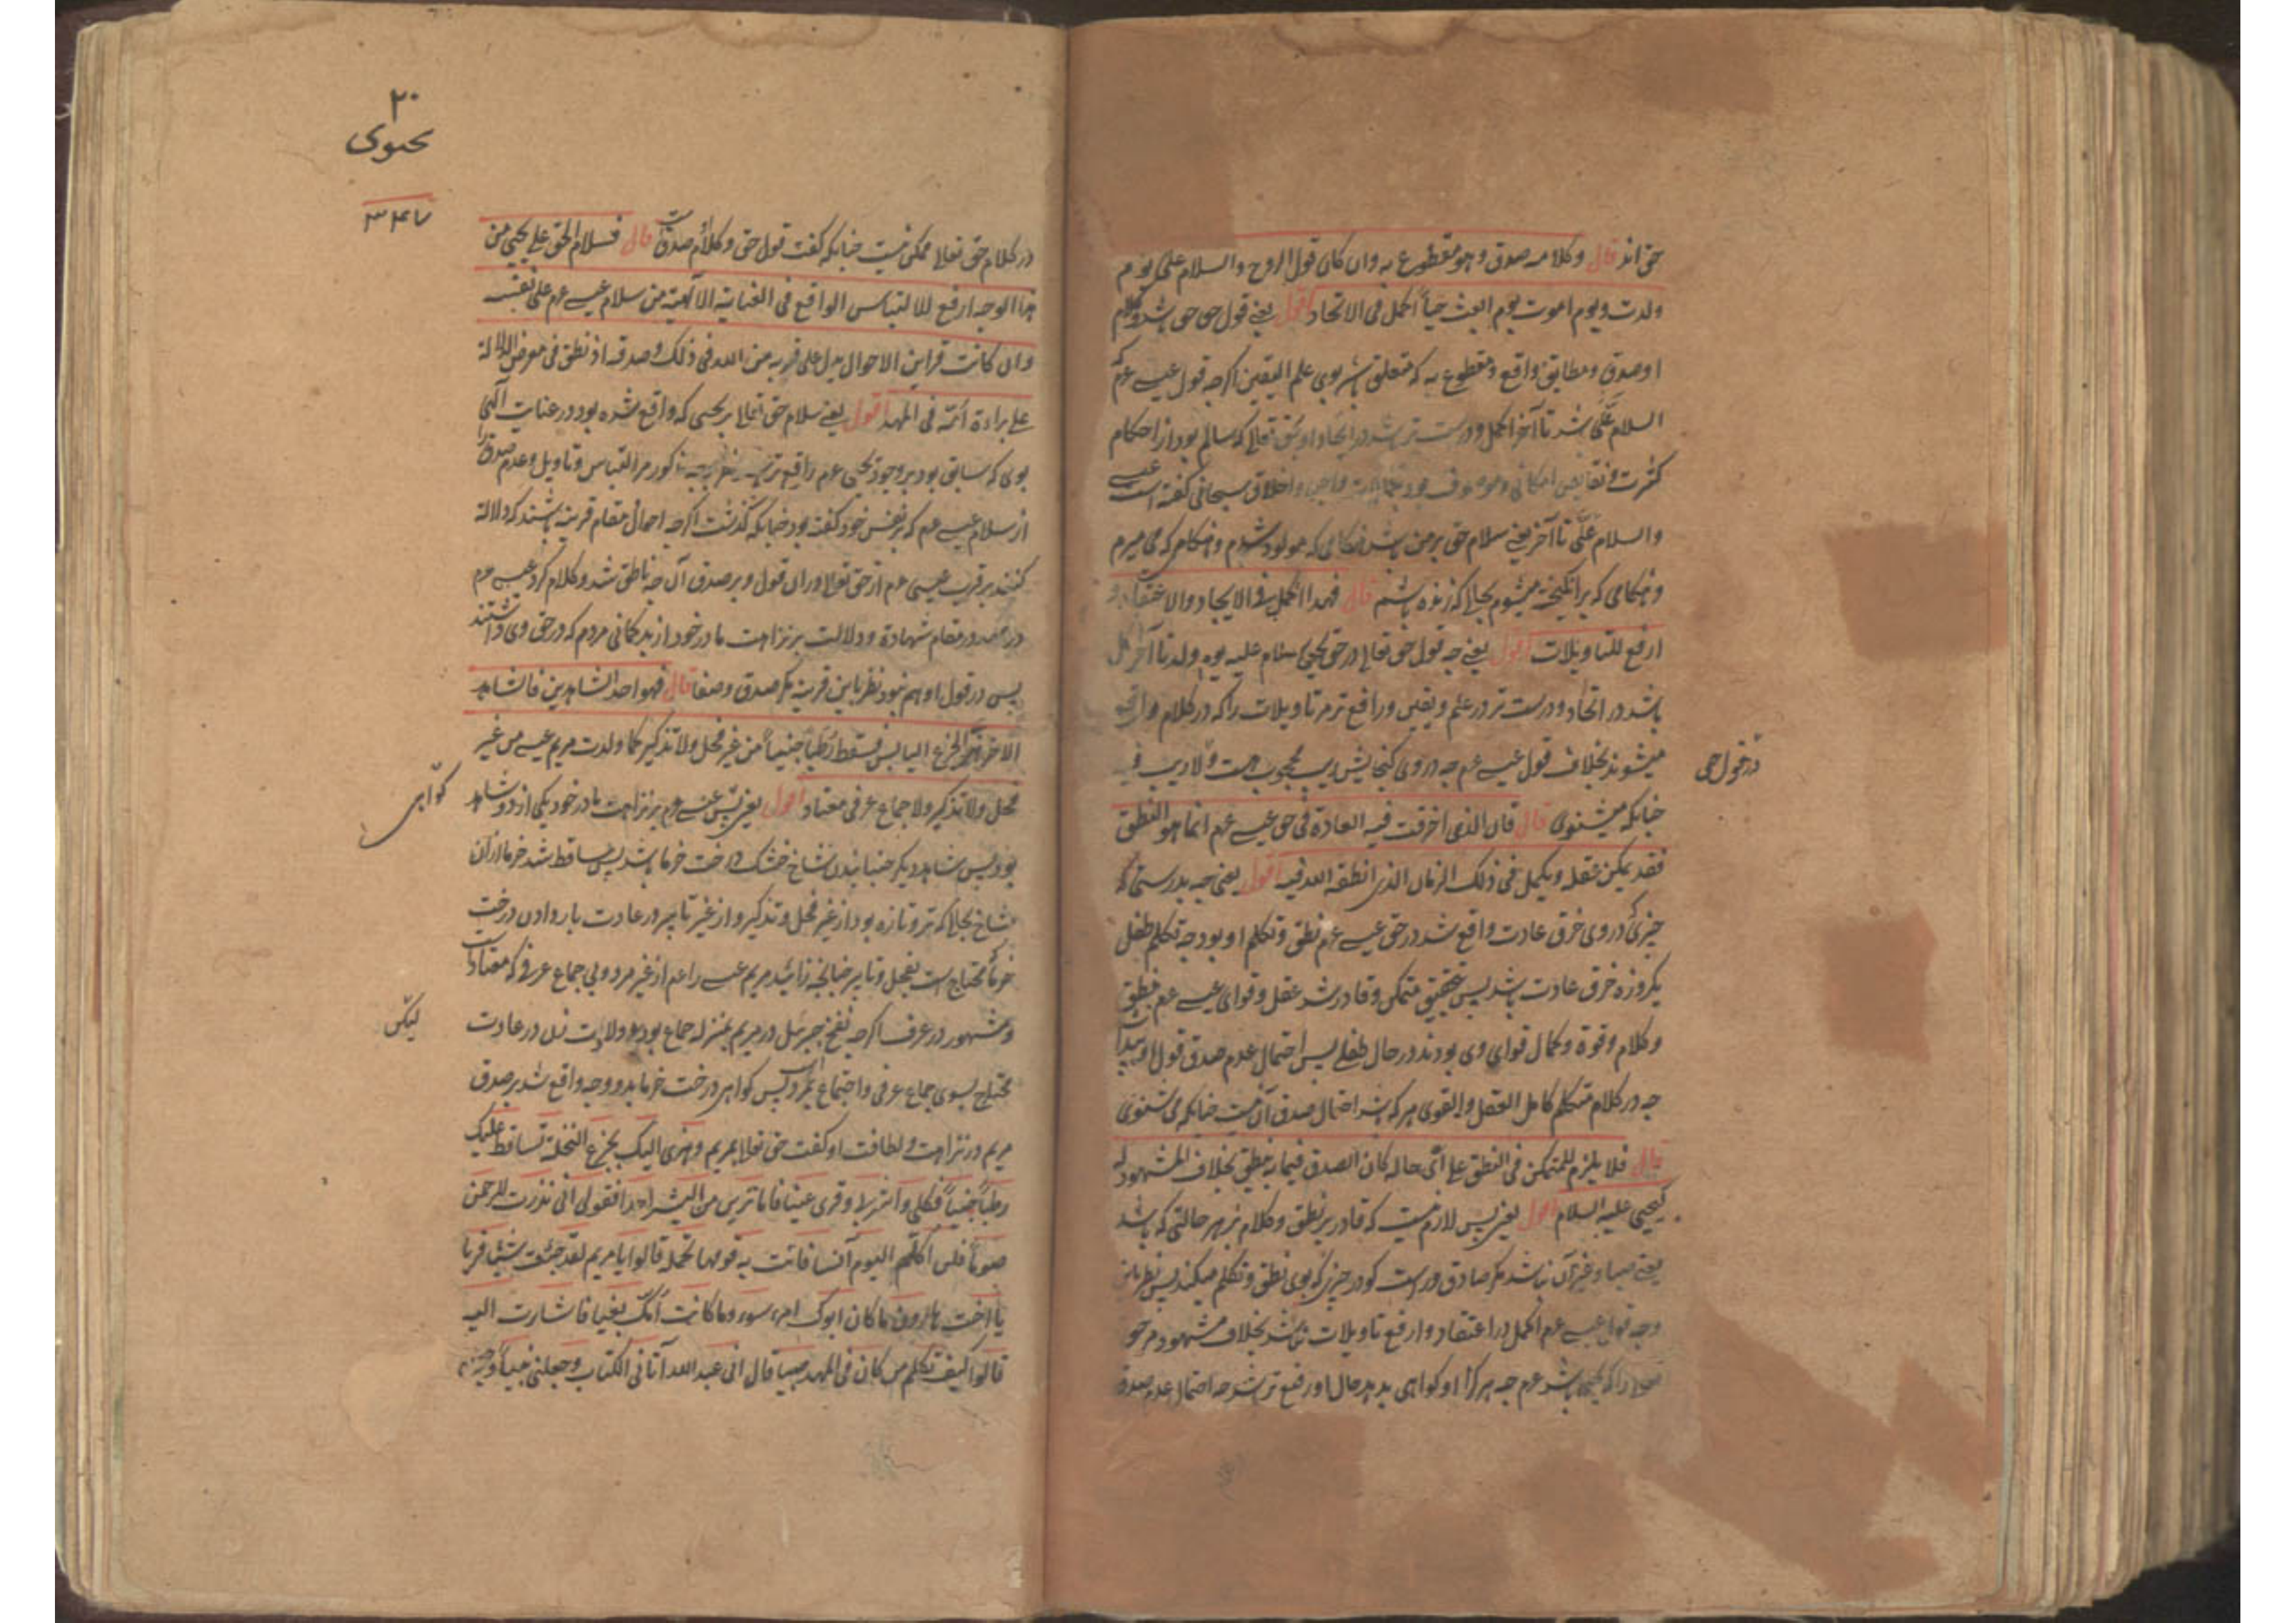 حق اند قال وکلامه صدق وهو مقطوع به وان کان قول الروح والسلام علی یوم
ولدت ویوم اموت ویوم ابعث حیا اکمل فی الاتحاد اقول یعنی قول حق حق باشد وکلام
او صدق ومطابق واقع ومقطوع به که متعلق باشد بوی علم الیقین اگرچه قول عیسی عم که
السلام علی شد تا آخر اکمل ودرست تر باشد در اتحاد او بحق تعالی که سالم بود از احکام
کثرت ونقایص امکانی وموصوف بود واخلاق سبحانی گفته است عیسی
والسلام علی تا آخر یعنی سلام حق بر من باشد هنکامی که مولود شدم وهنکامی که می میرم
وهنکامی که برانکیخته میشوم بحالی که زنده باشم قال فهذا اکمل فی الاتحاد والاعتقاد و
ارفع للتاویلات اقول یعنی چه قول حق تعالی در حق یحیی سلام علیه یوم ولد تا آخر اکمل
باشد در اتحاد ودرست تر در علم ویقین ورافع تر مر تاویلات را که در کلام واقع
میشوند بخلاف قول عیسی عم چه در وی کنجایش ریب محجوب هست ولا ریب فیه
در قول حق
چنانکه میشنوی قال فان الذی انخرقت فیه العادة فی حق عیسی عم انما هو النطق
فقد تمکن عقله وتکمل فی ذلک الزمان الذی انطقه الله فیه اقول یعنی چه بدرستی که
چیزی که در وی خرق عادت واقع شد در حق عیسی عم نطق وتکلم او بود چه تکلم طفل
یکروزه خرق عادت باشد پس بتحقیق متمکن وقادر شد عقل وقوای عیسی عم بنطق
وکلام وقوة وکمال قوای وی بودند در حال طفلی پس احتمال عدم صدق قول او پیدا
چه در کلام متکلم کامل العقل والقوی هر که باشد احتمال صدق آن هست چنانکه می شنوی
قال فلا یلزم للمتمکن فی النطق علی ای حاله کان الصدق فیما به ینطق بخلاف المشهود له
کیحیی علیه السلام اقول یعنی پس لازم نیست که قادر بر نطق وکلام بر هر حالتی که باشد
یعنی صبا وغیر آن نباشد مکر صادق وراست کو در چیزی که بوی نطق وتکلم میکند پس نظر باین
وجه قول عیسی عم اکمل در اعتقاد وارفع تاویلات نباشد بخلاف مشهود مر حق
تعالی را که یحیی باشد عم چه هر کرا او کواهی بدهد حال او رفیع تر باشد چه احتمال عدم صدق
۲۰
یحیوی
در کلام حق تعالی ممکن نیست چنانکه گفت قول حق وکلام صدق قال فسلام الحق علی یحیی من
هذا الوجه ارفع للالتباس الواقع فی العنایة الالهیة من سلام عیسی عم علی نفسه
وان کانت قراین الاحوال یدل علی قربه من الله فی ذلک وصدقه اذ نطق فی معرض الدلالة
علی براءة امه فی المهد اقول یعنی سلام حق تعالی بر یحیی که واقع شده بود در عنایت الهی
بوی که سابق بود بر وجود یحیی عم رافع تر مر التباس وتاویل وعدم صدق را
از سلام عیسی عم که بر نفس خود گفته بود چنانکه گذشت اگرچه احوال مقام قرینه باشند که دلالة
کنند بر قرب عیسی عم از حق تعالی در آن قول وبر صدق آن چه ناطق شد وکلام کرد عیسی عم
در مهد در مقام شهادة ودلالت بر نزاهت مادر خود از بدکمانی مردم که در حق وی داشتند
پس در قول او هم نبود نظر باین قرینه مکر صدق وصفا قال فهو احد الشاهدین فالشاهد
الآخر هز الجذع الیابس فسقط رطبا جنیا من غیر فحل ولا تذکیر کما ولدت مریم عیسی من غیر
فحل ولا تذکیر ولا جماع عرفی معتاد اقول یعنی پس عیسی عم بر نزاهت مادر خود یکی از دو شاهد
کواهی
بود پس شاهد دیکر جنبانیدن شاخ خشک درخت خرما باشد پس ساقط شد خرما از آن
شاخ بحالی که تر وتازه بود از غیر فحل وتذکیر واز غیر تابیر در عادت بار دادن درخت
خرما محتاج است بفحل وتابیر چنانچه زائید مریم عیسی را عم از غیر مرد وبی جماع عرفی که معتاد است
ومشهور در عرف اگرچه نفخ جبرئیل در مریم بمنزله جماع بود ولادت زن در عادت
لیکن
محتاج بسوی جماع عرفی واجتماع بمرد پس کواهی درخت خرما بدو وجه واقع شد بر صدق
مریم در نزاهت ولطافت او گفت حق تعالی بمریم وهزی الیک بجذع النخلة تساقط علیک
رطبا جنیا فکلی واشربی وقری عینا فاما ترین من البشر احدا فقولی انی نذرت للرحمن
صوما فلن اکلم الیوم انسیا فاتت به قومها تحمله قالوا یا مریم لقد جئت شیئا فریا
یا اخت هارون ما کان ابوک امرء سوء وما کانت امک بغیا فاشارت الیه
قالوا کیف نکلم من کان فی المهد صبیا قال انی عبد الله آتانی الکتاب وجعلنی نبیا